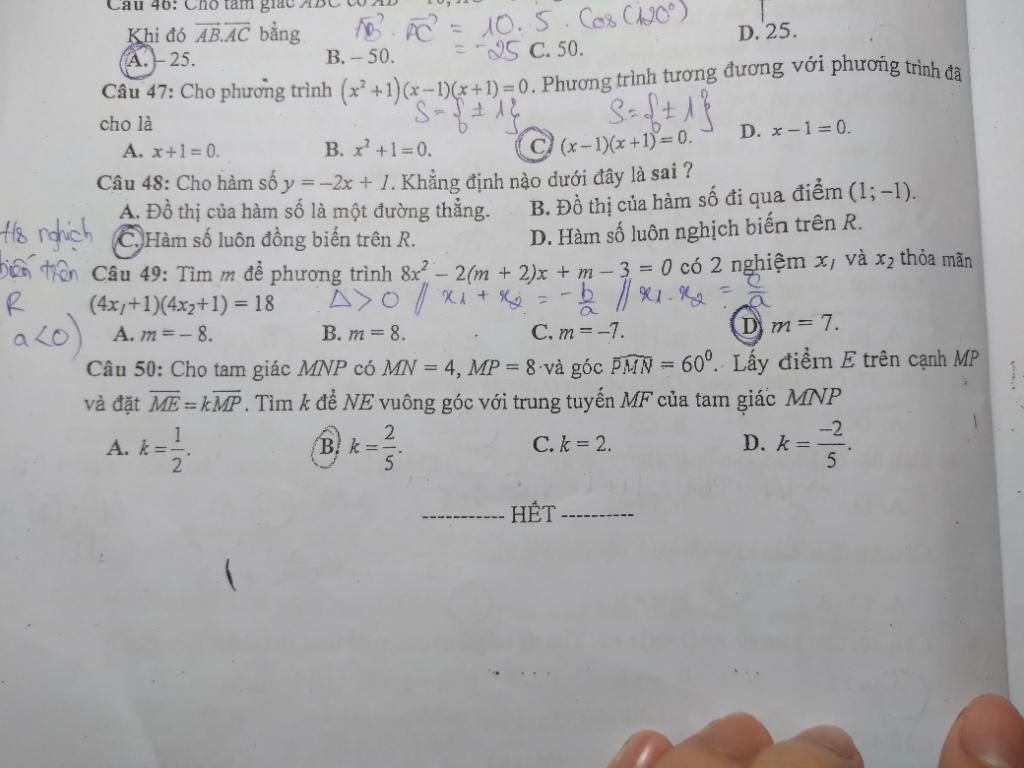 Câu 46: Cho tam giác ABC có AB
Khi đó AB.AC bằng AB . AC = 10 . 5 . Cos (120°)
= -25
A. – 25. B. – 50. C. 50. D. 25.
Câu 47: Cho phương trình (x² +1)(x−1)(x+1) = 0. Phương trình tương đương với phương trình đã
cho là S = {± 1} S = {± 1}
A. x+1 = 0. B. x² +1 = 0. C. (x−1)(x+1) = 0. D. x −1 = 0.
Câu 48: Cho hàm số y = –2x + 1. Khẳng định nào dưới đây là sai ?
A. Đồ thị của hàm số là một đường thẳng. B. Đồ thị của hàm số đi qua điểm (1; −1).
C. Hàm số luôn đồng biến trên R. D. Hàm số luôn nghịch biến trên R.
Hs nghịch
biến trên
R
a<0)
Câu 49: Tìm m để phương trình 8x² − 2(m + 2)x + m − 3 = 0 có 2 nghiệm x₁ và x₂ thỏa mãn
(4x₁+1)(4x₂+1) = 18 Δ > 0 // x1 + x2 = -b/a // x1 . x2 = c/a
A. m = – 8. B. m = 8. C. m = –7. D. m = 7.
Câu 50: Cho tam giác MNP có MN = 4, MP = 8 và góc PMN = 60⁰. Lấy điểm E trên cạnh MP
và đặt ME = kMP. Tìm k để NE vuông góc với trung tuyến MF của tam giác MNP
A. k = 1/2. B. k = 2/5. C. k = 2. D. k = −2/5.
----------- HẾT ----------